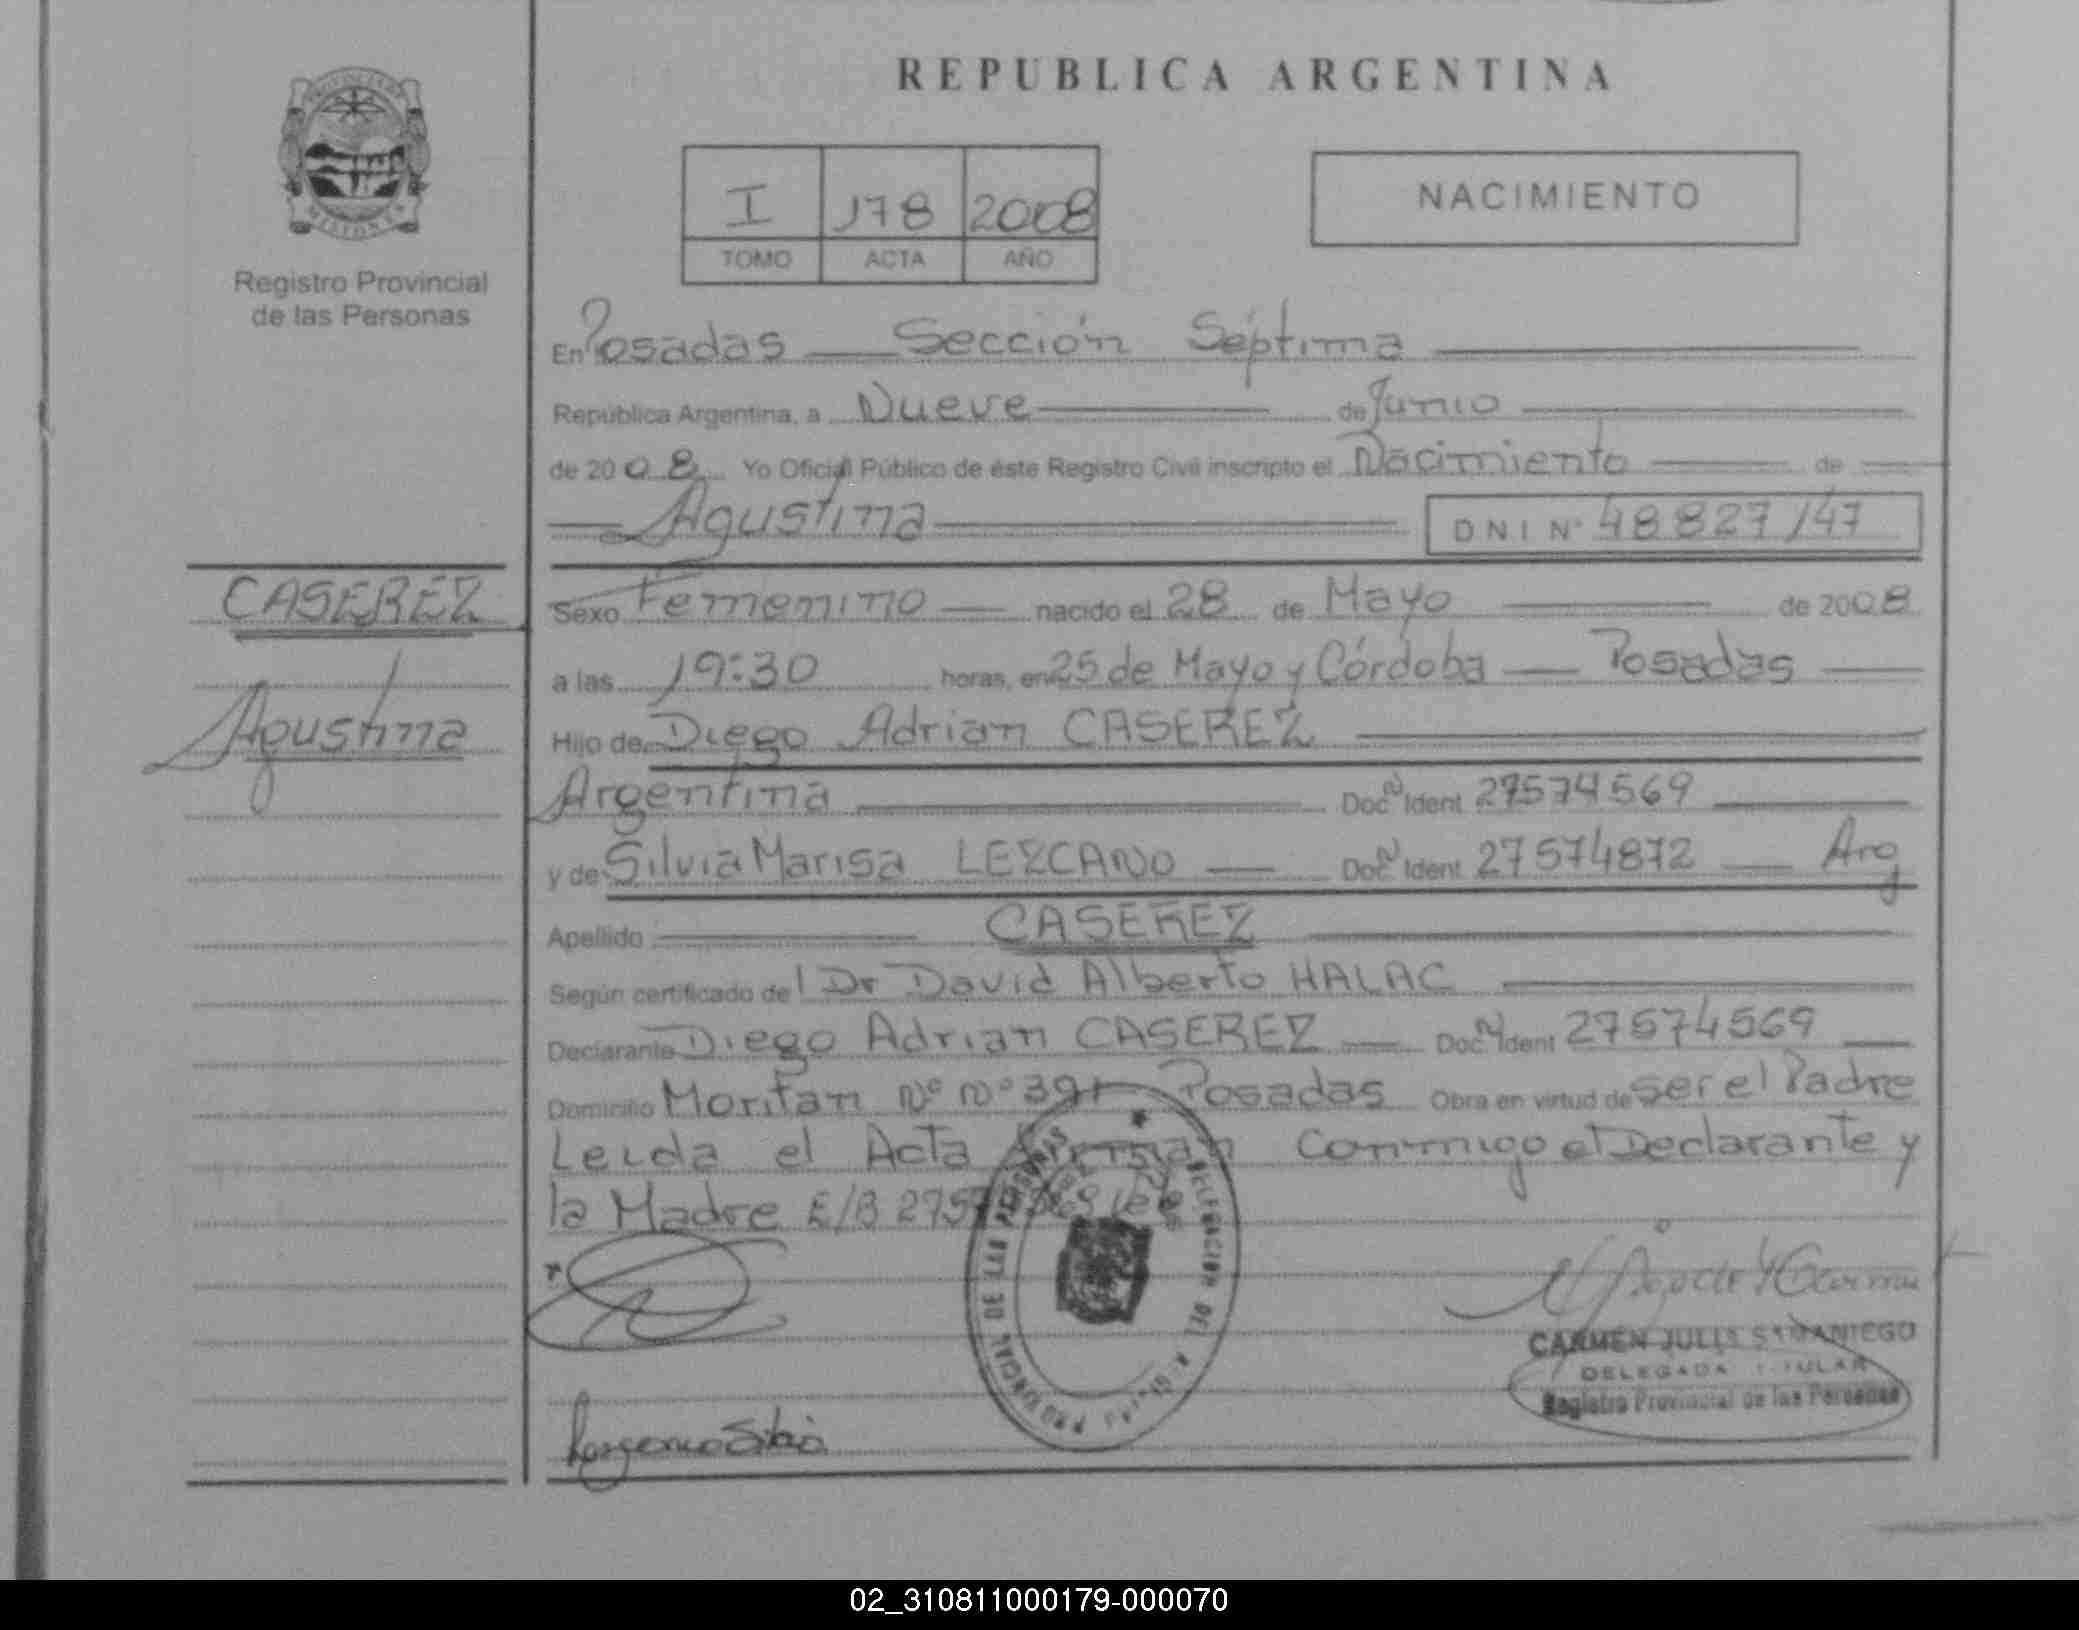 REPUBLICA ARGENTINA
PROVINCIA DE
MISIONES
Registro Provincial
de las Personas
I 178 2008
TOMO ACTA AÑO
NACIMIENTO
En Posadas Sección Séptima
República Argentina, a Nueve de Junio
de 2008 Yo Oficial Público de éste Registro Civil inscripto el Nacimiento de
Agustina DNI Nº 48827147
CASEREZ
Agustina
Sexo Femenino nacido el 28 de Mayo de 2008
a las 19:30 horas, en 25 de Mayo y Córdoba Posadas
Hijo de Diego Adrian CASEREZ
Argentina Doc Nº Ident 27574569
y de Silvia Marisa LEZCANO Doc Nº Ident 27574872 Arg
Apellido CASEREZ
Según certificado del Dr David Alberto HALAC
Declarante Diego Adrian CASEREZ Doc Nº Ident 27574569
Domicilio Nº Nº 391 Posadas Obra en virtud de ser el Padre
Leida el Acta Firman Conmigo el Declarante y
la Madre E/B
CARMEN
DELEGADA TITULAR
Registro Provincial de las Personas
PROVINCIAL DE LAS PERSONAS
DELEGACION DEL
02_310811000179-000070